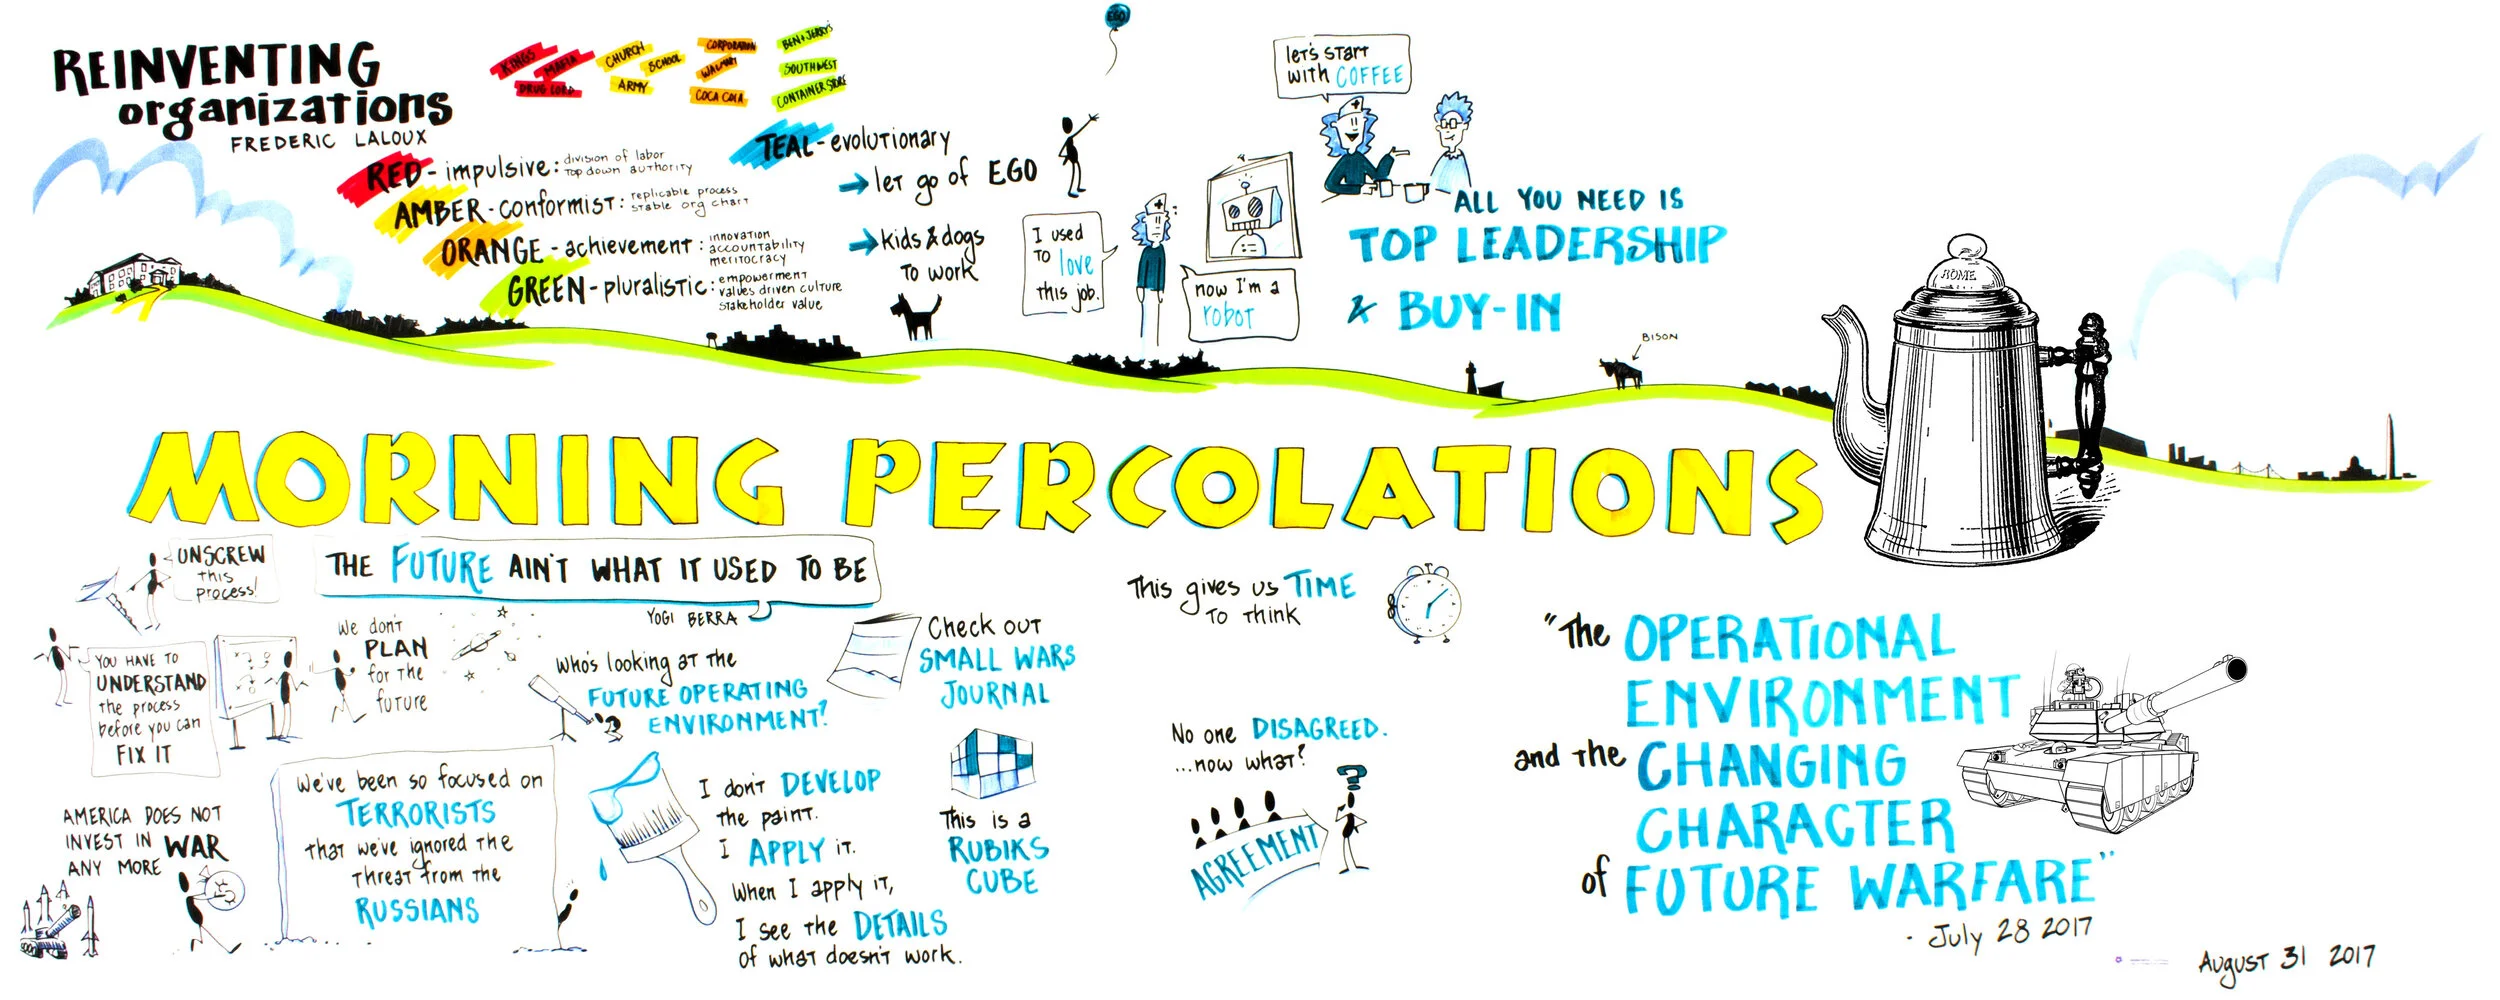 REINVENTING
organizations
FREDERIC LALOUX
KINGS
MAFIA
DRUG LORD
CHURCH
SCHOOL
ARMY
CORPORATION
WALMART
COCA COLA
BEN & JERRY'S
SOUTHWEST
CONTAINER STORE
RED - impulsive: division of labor
top down authority
AMBER - conformist: replicable process
stable org chart
ORANGE - achievement: innovation
accountability
meritocracy
GREEN - pluralistic: empowerment
values driven culture
stakeholder value
TEAL - evolutionary
let go of EGO
kids & dogs
to work
EGO
I used
to love
this job.
now I'm a
robot
let's start
with COFFEE
ALL YOU NEED IS
TOP LEADERSHIP
& BUY-IN
BISON
ROME
MORNING PERCOLATIONS
UNSCREW
this
process!
YOU HAVE TO
UNDERSTAND
the process
before you can
FIX IT
THE FUTURE AIN'T WHAT IT USED TO BE
YOGI BERRA
we don't
PLAN
for the
future
who's looking at the
FUTURE OPERATING
ENVIRONMENT?
Check out
SMALL WARS
JOURNAL
AMERICA DOES NOT
INVEST IN WAR
ANY MORE
We've been so focused on
TERRORISTS
that we've ignored the
threat from the
RUSSIANS
I don't DEVELOP
the paint.
I APPLY it.
When I apply it,
I see the DETAILS
of what doesn't work.
This is a
RUBIKS
CUBE
This gives us TIME
to think
No one DISAGREED.
...now what?
?
AGREEMENT
"The OPERATIONAL
ENVIRONMENT
and the CHANGING
CHARACTER
of FUTURE WARFARE"
- July 28 2017
August 31 2017